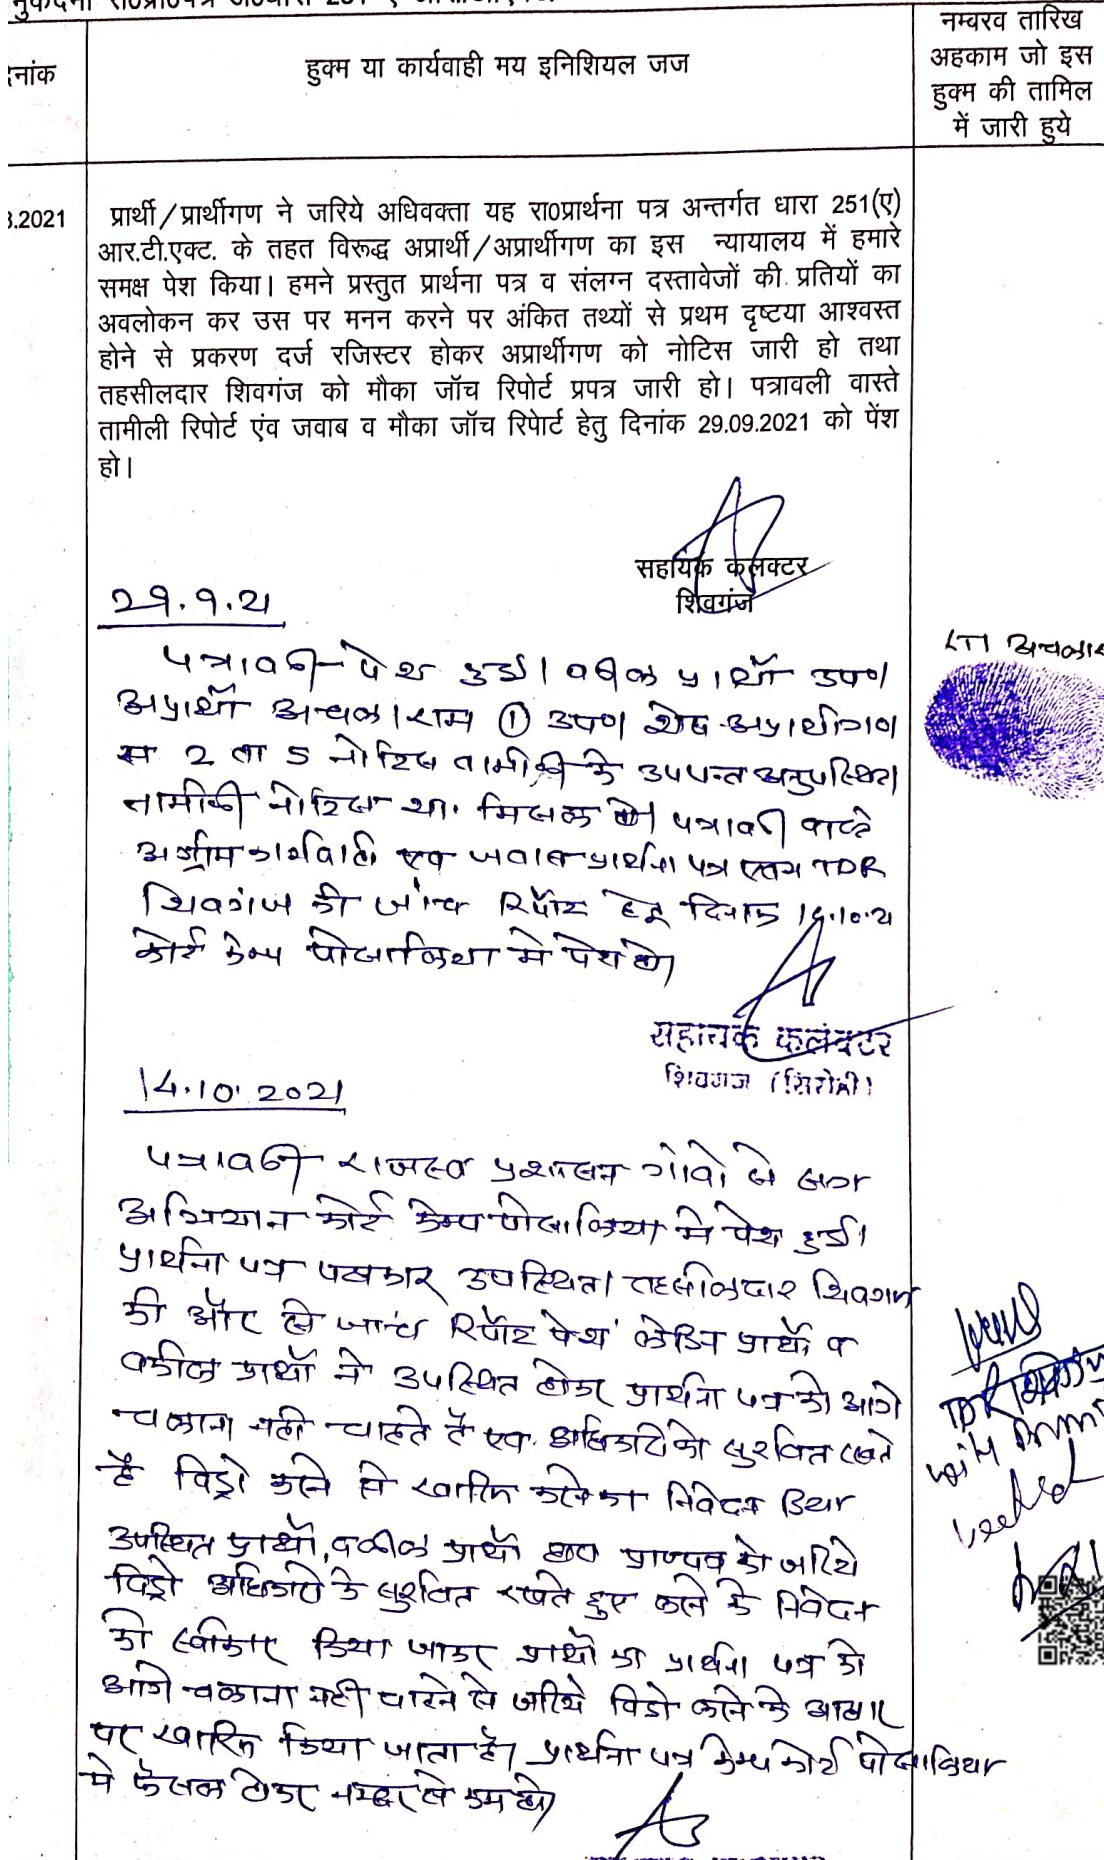 हुक्म या कार्यवाही मय इनिशियल जज
नम्बरव तारिख
अहकाम जो इस
हुक्म की तामिल
में जारी हुये
.2021
प्रार्थी/प्रार्थीगण ने जरिये अधिवक्ता यह रा0प्रार्थना पत्र अन्तर्गत धारा 251(ए)
आर.टी.एक्ट. के तहत विरूद्ध अप्रार्थी/अप्रार्थीगण का इस न्यायालय में हमारे
समक्ष पेश किया। हमने प्रस्तुत प्रार्थना पत्र व संलग्न दस्तावेजों की प्रतियों का
अवलोकन कर उस पर मनन करने पर अंकित तथ्यों से प्रथम दृष्टया आश्वस्त
होने से प्रकरण दर्ज रजिस्टर होकर अप्रार्थीगण को नोटिस जारी हो तथा
तहसीलदार शिवगंज को मौका जॉच रिपोर्ट प्रपत्र जारी हो। पत्रावली वास्ते
तामीली रिपोर्ट एंव जवाब व मौका जॉच रिपोर्ट हेतु दिनांक 29.09.2021 को पेंश
हो।
सहायक कलक्टर
शिवगंज
29.9.21
पत्रावली पेश हुई। वकील प्रार्थी उप०
अप्रार्थी अचलाराम ① उप० शेष अप्रार्थीगण
स 2 ता 5 नोटिस तामीली के उपरान्त अनुपस्थित।
तामीली नोटिस शा. मिसल हो। पत्रावली वास्ते
अग्रीम कार्यवाही एवं जवाब प्रार्थना पत्र एवम TDR
शिवगंज की जांच रिर्पोट हेतु दिनांक 14.10.21
कोर्ट केम्प पोसालिया मे पेश हो।
LTI अचलारा
सहायक कलक्टर
शिवगंज (सिरोही)
14.10.2021
पत्रावली राजस्व प्रशासन गांवो के संग
अभियान कोर्ट केम्प पोसालिया मे पेश हुई।
प्रार्थना पत्र पक्षकार उपस्थित। तहसीलदार शिवगंज
की और से जांच रिर्पोट पेश लेकिन प्रार्थी व
वकील प्रार्थी ने उपस्थित होकर प्रार्थना पत्र को आगे
चलाना नही चाहते है एवं अधिकारो को सुरक्षित रखते
है विड्रो करने से खारिज करने का निवेदन किया
उपस्थित प्रार्थी, वकील प्रार्थी द्वारा प्रा०पत्र को जरिये
विड्रो अधिकारो के सुरक्षित रखते हुए करने के निवेदन
को स्वीकार किया जाकर प्रार्थी का प्रार्थना पत्र को
आगे चलाना नही चाहने से जरिये विड्रो करने के आधार
पर खारिज किया जाता है। प्रार्थना पत्र केम्प कोर्ट पोसालिया
मे फैसल होकर नम्बर से कम हो।